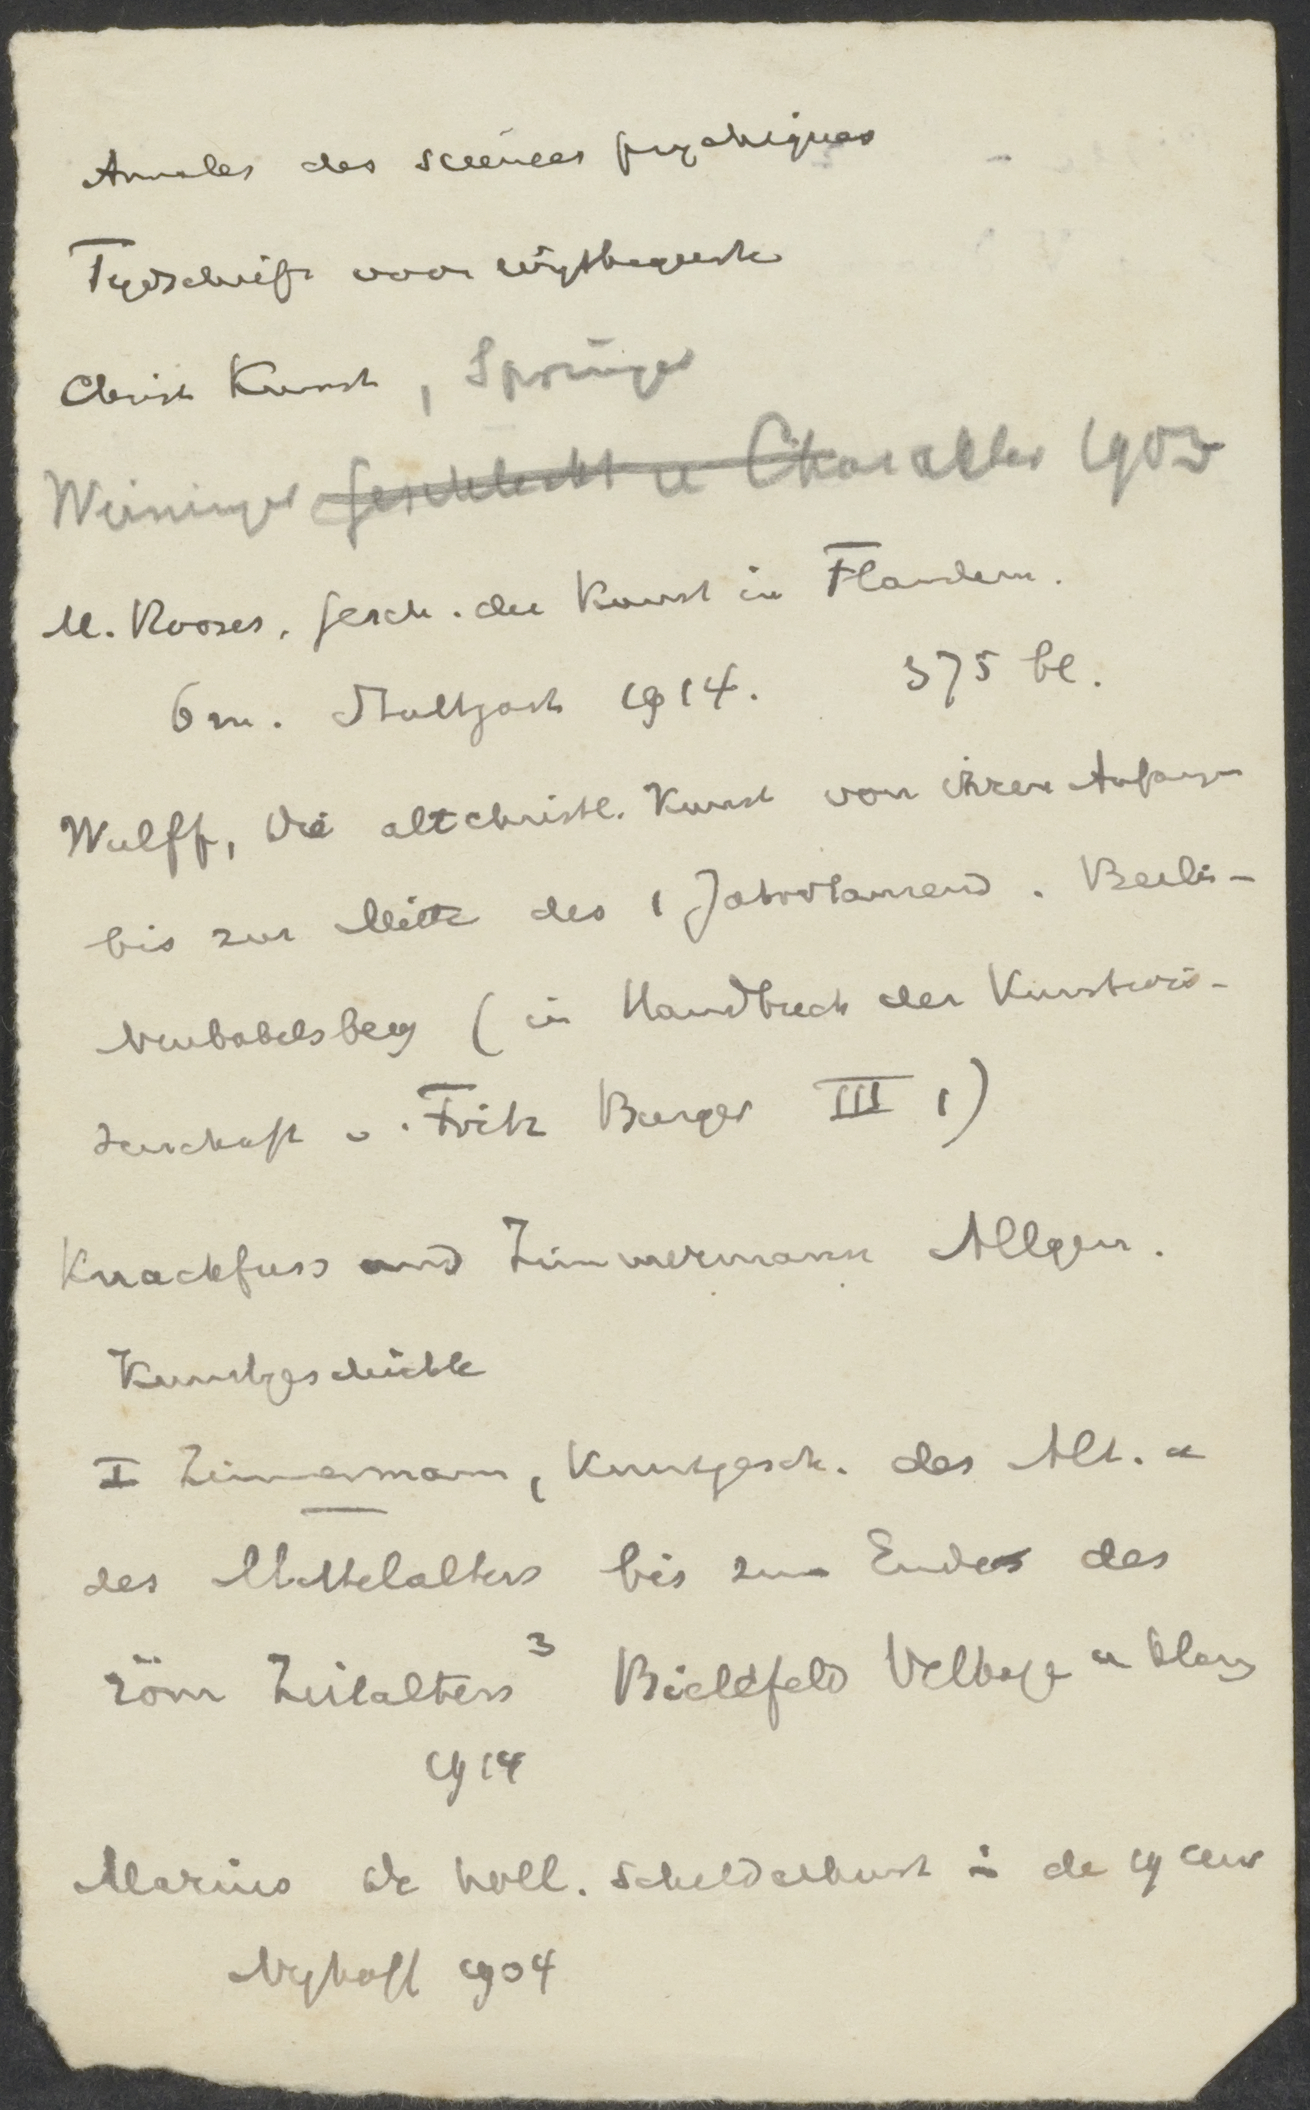 Annales des sciences psychiques
Tydschrift voor wijsbegeerte
Christ Kunst, Springer
Weininger Geschlecht u Charakter 1903
M. Rooses, Gesch. der Kunst in Flandern.
6 m. Stuttgart 1914. 375 bl.
Wulff, Die altchristl. Kunst von ihren Anfangen
bis zur Mitte des 1 Jahrtausend. Berlin-
Neubabelsberg (in Handbuch der Kunstwis-
senschaft v. Fritz Burger III 1)
Knackfuss und Zimmermann Allgem.
Kunstgeschichte
I Zimmermann, Kunstgesch. des Alt. u
des Mittelalters bis zum Endes des
röm Zeitalters 3 Bielefeld Velhage u Klas
1914
Marius de holl. schilderkunst in de 19 eeuw
Nyhoff 1904